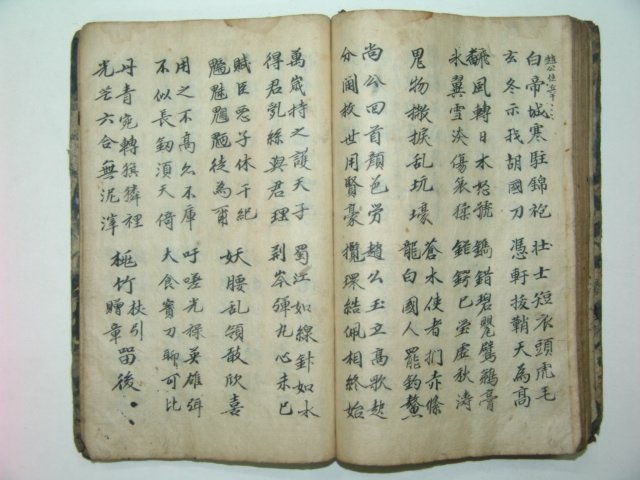 白帝城寒駐錦袍
玄冬示我胡國刀
壯士短衣頭虎毛
憑軒拔鞘天為髙
飜風轉日木怒號
氷翼雪淡傷哀猱
鐫錯碧甖鸊鵜膏
鋩鍔已瑩虛秋濤
鬼物撇捩乱坑壕
蒼水使者捫赤絛
龍白國人罷釣鰲
尚公回首顏色勞
分閫救世用賢豪
趙公玉立高歌起
攬環結佩相終始
萬歲持之護天子
得君乱絲與君理
蜀江如線針如水
荆岑彈丸心未已
賊臣惡子休干紀
魑魅魍魎徒為爾
妖腰乱領敢欣喜
用之不高亦不庳
不似長釰須天倚
吁嗟光祿英雄弭
大食寳刀聊可比
丹青宛轉猉獜裡
光芒六合無泥滓
桃竹杖引
贈章留後